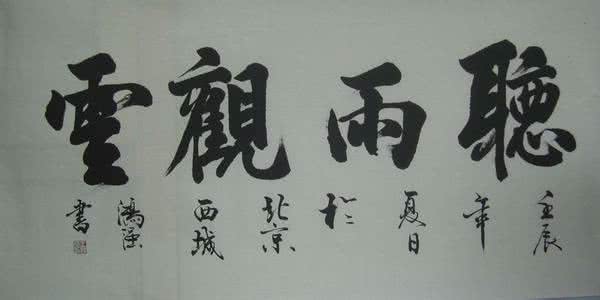 聽雨觀雲
壬辰年夏日於北京西城鴻強書